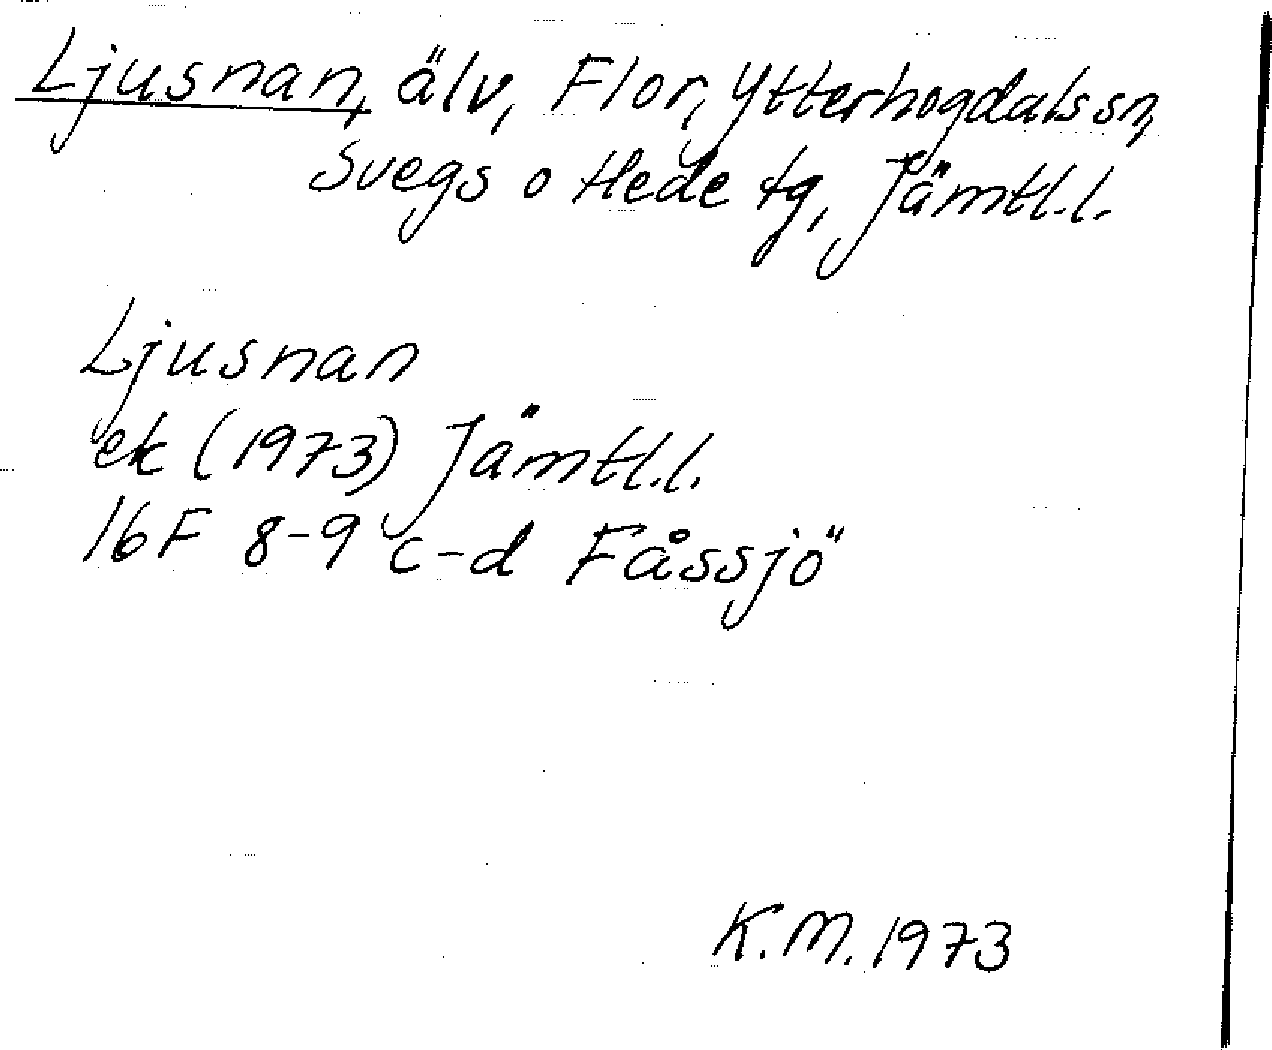 Ljusnan, älv, Flor, Ytterhogdals sn,
Svegs o Hede tg, Jämtl.l.
Ljusnan
ek (1973) Jämtl.l.
16F 8-9 c-d Fåssjö
K.M. 1973